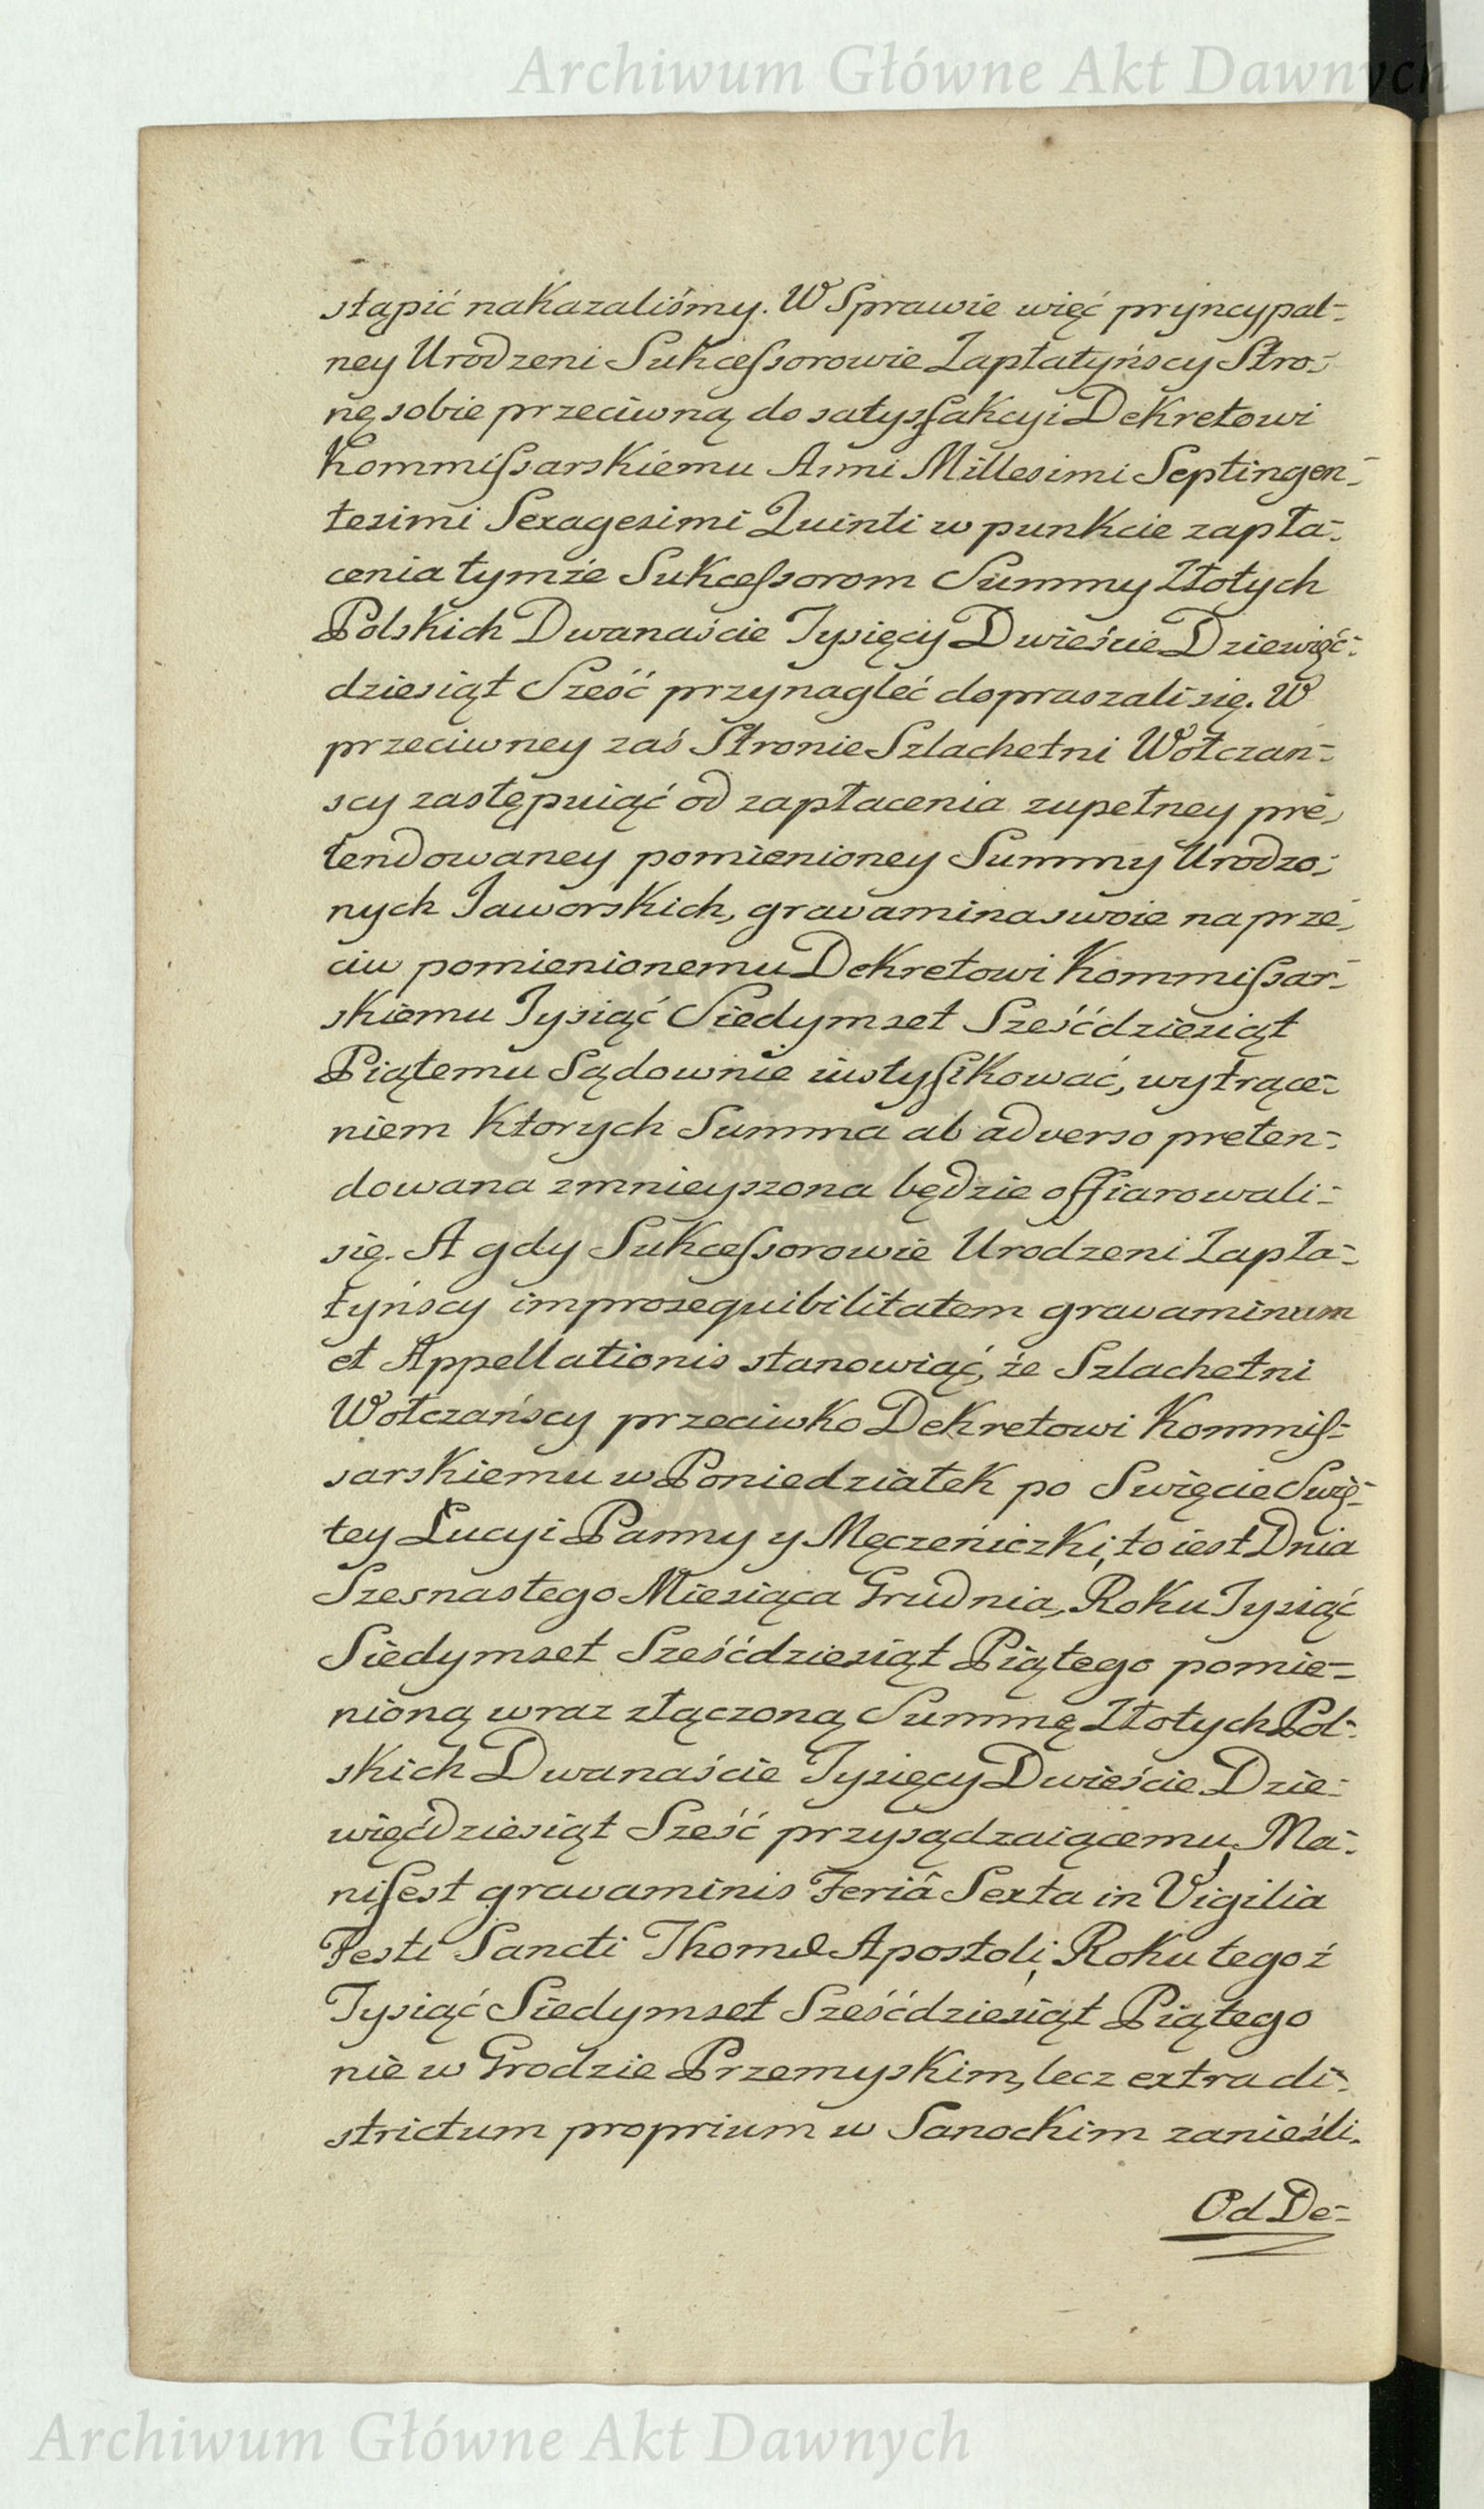 Archiwum Główne Akt Dawnych
stąpić nakazaliśmy. W Sprawie więć pryncypal-
ney Urodzeni Sukcessorowie Zapłatyńscy Stro-
nę sobie przeciwną do satysfakcyi Dekretowi
Kommissarskiemu Anni Millesimi Septingen-
tesimi Sexagesimi Quinti w punkcie zapła-
cenia tymże Sukcessorom Summy Złotych
Polskich Dwanaście Tysięcy Dwieście Dziewięć-
dziesiąt Sześć przynagleć dopraszali się. W
przeciwney zaś Stronie Szlachetni Wołczań-
scy zastępuiąć od zapłacenia zupełney pre-
tendowaney pomienioney Summy Urodzo-
nych Jaworskich, gravamina swoie naprze-
ciw pomienionemu Dekretowi Kommissar-
skiemu Tysiąć Siedymset Sześćdziesiąt
Piątemu Sądownie iustyfikować, wytrące-
niem ktorych Summa ab adverso preten-
dowana zmnieyszona będzie offiarowali-
się. A gdy Sukcessorowie Urodzeni Zapła-
tyńscy improsequibilitatem gravaminum
et Appellationis stanowiąć, że Szlachetni
Wołczańscy przeciwko Dekretowi Kommis-
sarskiemu w Poniedziałek po Swięcie Swię-
tey Lucyi Panny y Męczeniczki, to iest Dnia
Szesnastego Miesiąca Grudnia, Roku Tysiąć
Siedymset Sześćdziesiąt Piątego pomie-
nioną wraz złączoną Summę Złotych Pol-
skich Dwanaście Tysięcy Dwieście Dzie-
więćdziesiąt Sześć przysądzaiącemu, Ma-
nifest gravaminis Feriâ Sexta in Vigilia
Festi Sancti Thomæ Apostoli, Roku tegoż
Tysiąć Siedymset Sześćdziesiąt Piątego
nie w Grodzie Przemyskim, lecz extra di-
strictum proprium w Sanockim zanieśli.
Od De-
Archiwum Główne Akt Dawnych